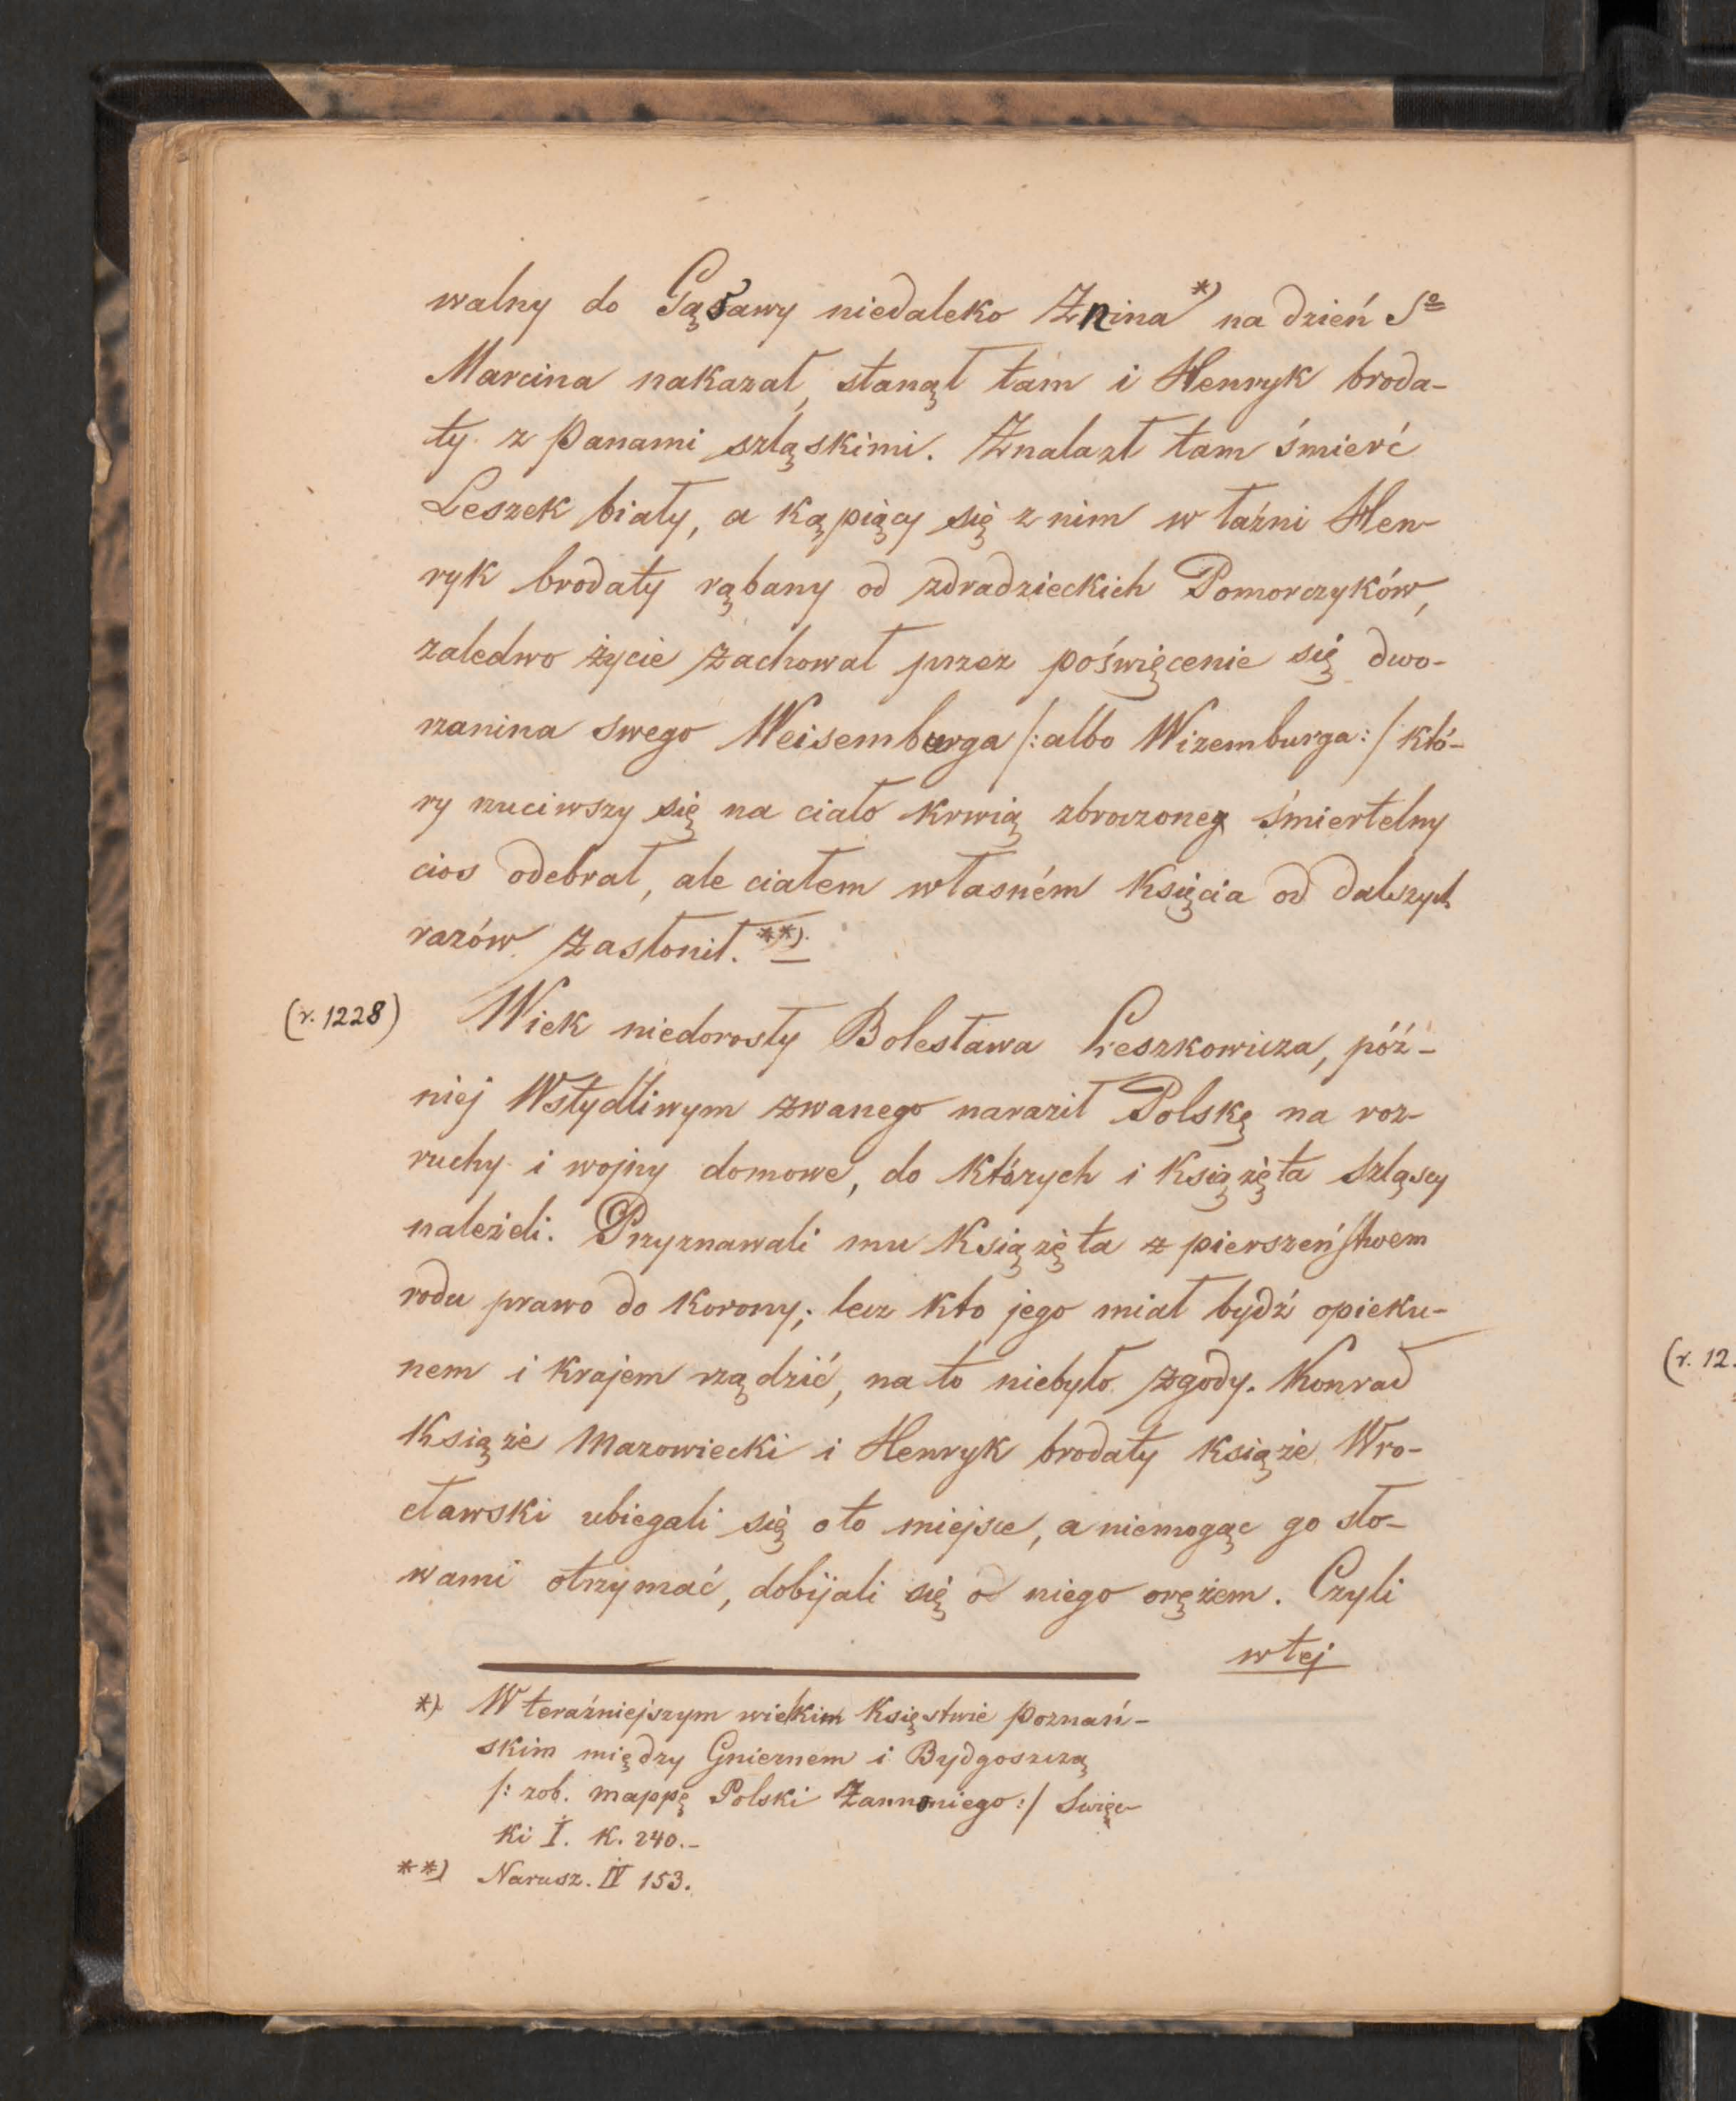 walny do Gąsawy niedaleko Znina *) na dzień S⁰
Marcina nakazał, stanął tam i Henryk broda-
ty z Panami szląskimi. Znalazł tam śmierć
Leszek biały, a kąpiący się z nim w łaźni Hen-
ryk brodaty rąbany od zdradzieckich Pomorczyków,
zaledwo życie zachował przez poświęcenie się dwo-
rzanina swego Weisemburga /:albo Wizemburga:/ któ-
ry rzuciwszy się na ciało krwią zbroczoneg śmiertelny
cios odebrał, ale ciałem własném Księcia od dalszych
razów zasłonił. **)
(r. 1228) Wiek niedorosły Bolesława Leszkowicza, póź-
niej Wstydliwym zwanego naraził Polskę na roz-
ruchy i wojny domowe, do których i Książęta szląscy
należeli. Przyznawali mu Książęta z pierszeństwem
rodu prawo do Korony; lecz kto jego miał bydź opieku-
nem i krajem rządzić, na to niebyło zgody. Konrad
Książe Mazowiecki i Henryk brodaty książe Wro-
cławski ubiegali się o to miejsce, a niemogąc go sło-
wami otrzymać, dobijali się od niego orężem. Czyli
w tej
*) W teraźniejszym wielkim Księstwie poznań-
skim między Gnieznem i Bydgoszczą
/: zob. mappę Polski Zannoniego:/ Święc-
ki I. K. 240.-
**) Narusz. IV 153.
(r. 12